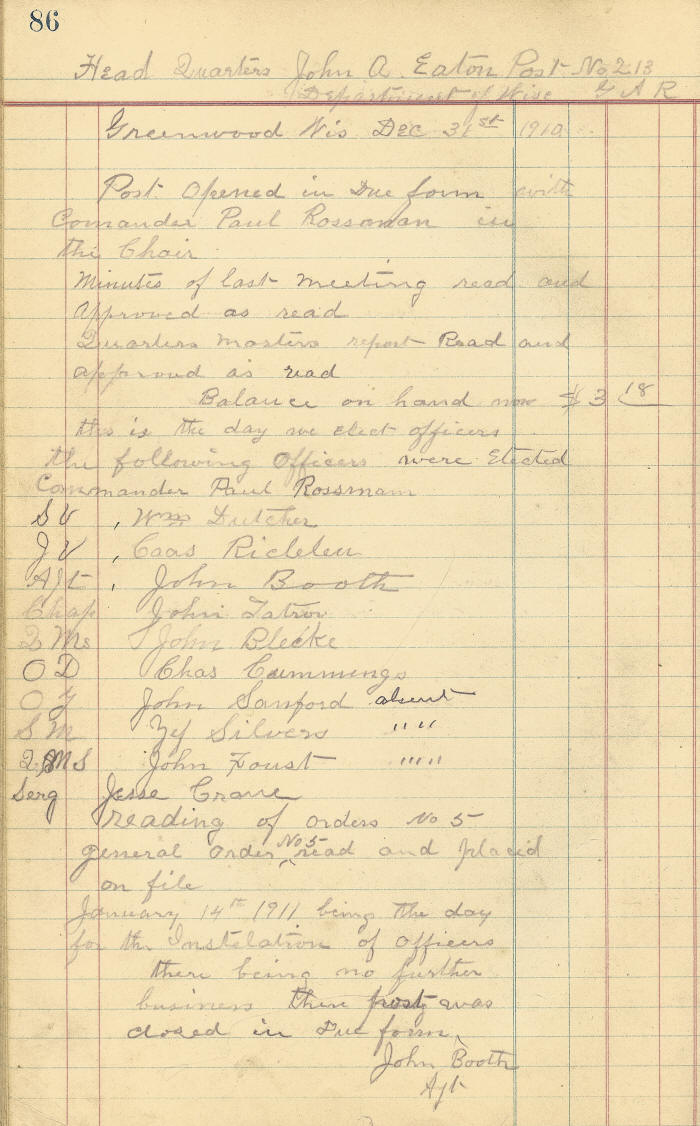 86
Head Quarters John A. Eaton Post No 213
Department of Wisc G A R
Greenwood Wis Dec 31st 1910
Post Opened in Due form with
Comander Paul Rossman in
the Chair
Minutes of last meeting read and
approved as read
Quarters Masters report Read and
approved as read
Balance on hand now $3 18
this is the day we elect officers
the following Officers were Elected
Commander Paul Rossmam
S V , Wm Dutcher
J V , Caas
Ajt , John Booth
Chap John Tatro
Q Ms John Blecke
O D Chas Cummings
O G John Sanford absent
S M Silvers " "
Q M S John Foust " "
Serg Jesse Crane
reading of orders No 5
general order No 5 read and placed
on file
January 14th 1911 being the day
for the Instelation of officers
there being no further
business then post was
closed in Due form
John Booth
Ajt